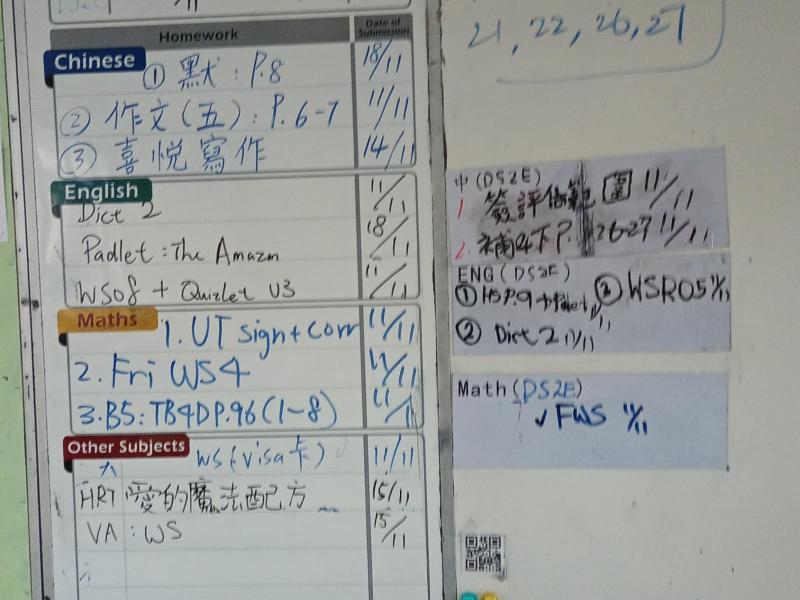 21, 22, 26, 27
Homework
Date of Submission
Chinese
① 默: P.8 18/11
② 作文(五): P. 6-7 11/11
③ 喜悅寫作 14/11
English
Dict 2 11/11
Padlet: The Amazon 18/11
WS08 + Quizlet U3 11/11
Maths
1. UT sign + corr 11/11
2. Fri WS4 11/11
3. B5: TB4D P.96 (1-8)
Other Subjects
WS (visa卡) 11/11
HRT 愛的魔法配方 15/11
VA: WS 15/11
中(DS2E)
1. 簽評估範圍 11/11
2. 補4下P. 26-27 11/11
ENG (DS2E)
① ③ WSR05 11/11
② Dict 2 11/11
Math (DS2E)
✓ FWS 11/11